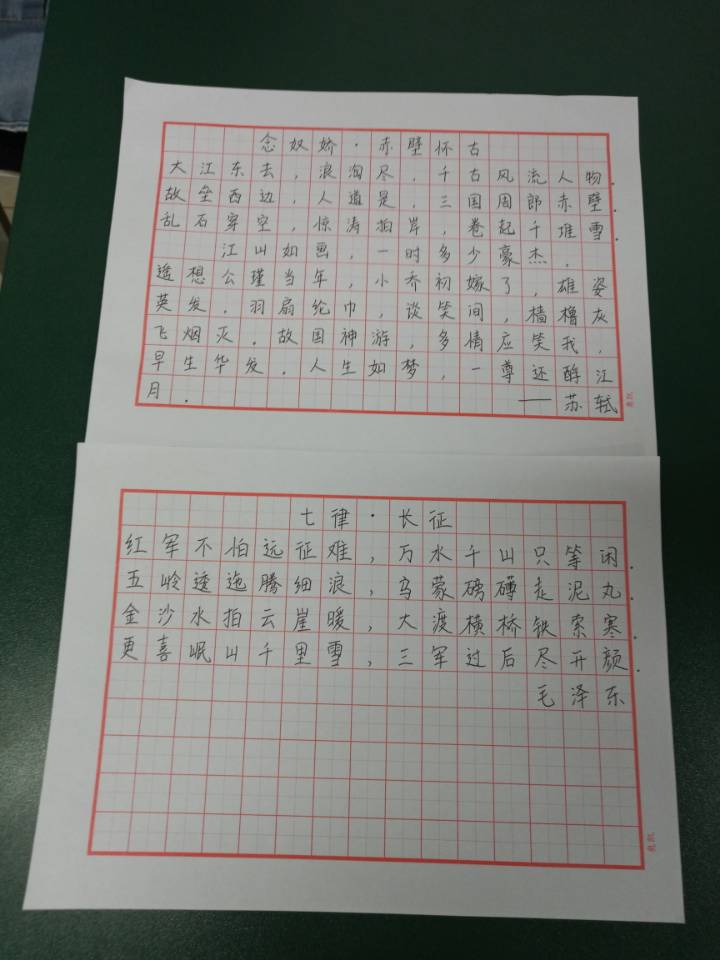 念奴娇·赤壁怀古
大江东去，浪淘尽，千古风流人物．
故垒西边，人道是，三国周郎赤壁．
乱石穿空，惊涛拍岸，卷起千堆雪．
江山如画，一时多少豪杰．
遥想公瑾当年，小乔初嫁了，雄姿
英发．羽扇纶巾，谈笑间，樯橹灰
飞烟灭．故国神游，多情应笑我，
早生华发．人生如梦，一尊还酹江
月．——苏轼
七律·长征
红军不怕远征难，万水千山只等闲．
五岭逶迤腾细浪，乌蒙磅礴走泥丸
金沙水拍云崖暖，大渡横桥铁索寒．
更喜岷山千里雪，三军过后尽开颜．
毛泽东